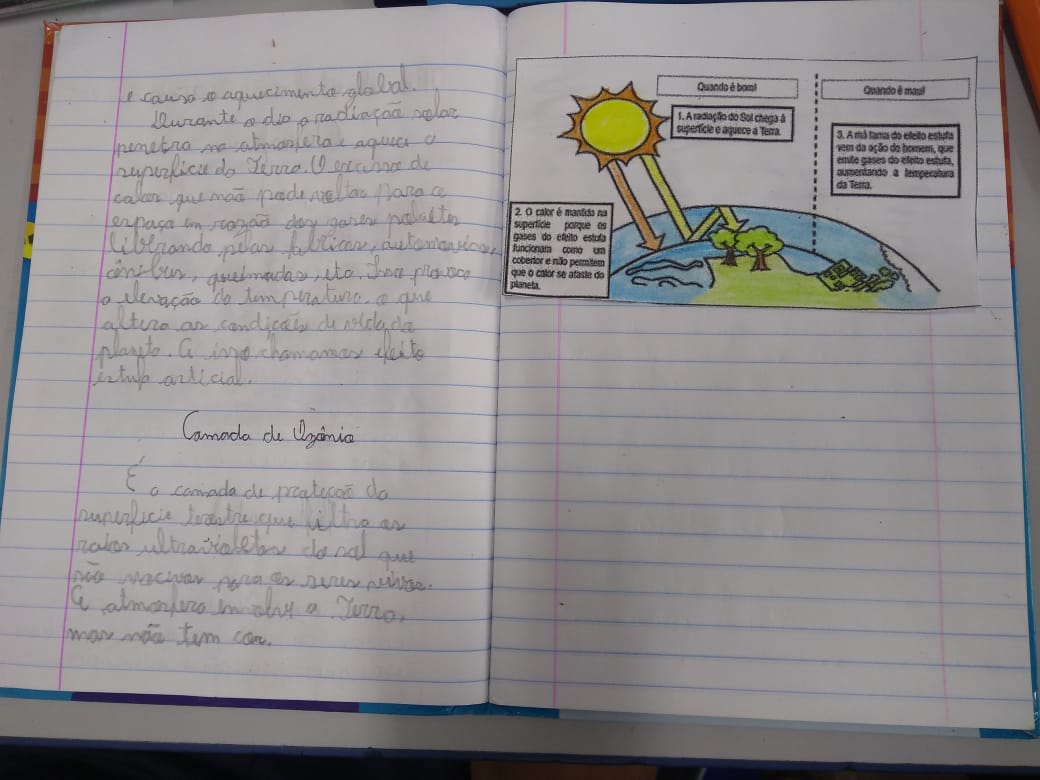 e causa o aquecimento global.
Durante o dia a radiação solar
penetra na atmosfera e aquece a
superfície da Terra. O excesso de
calor que não pode voltar para o
espaço em razão dos gases poluentes
liberando pelas fábricas, automóveis,
ônibus, queimadas, etc. Isso provoca
a elevação da temperatura, o que
altera as condições de vida do
planeto. A isso chamamos efeito
estufa
Camada de Ozônio
É a camada de proteção da
superfície que filtra os
raios ultravioletas do sol que
são para os seres vivos.
A atmosfera a Terra,
mas não tem cor.
Quando é bom!
1. A radiação do Sol chega à
superfície e aquece a Terra.
2. O calor é mantido na
superfície porque os
gases do efeito estufa
funcionam como um
cobertor e não permitem
que o calor se afaste do
planeta.
Quando é mau!
3. A má fama do efeito estufa
vem da ação do homem, que
emite gases do efeito estufa,
aumentando a temperatura
da Terra.